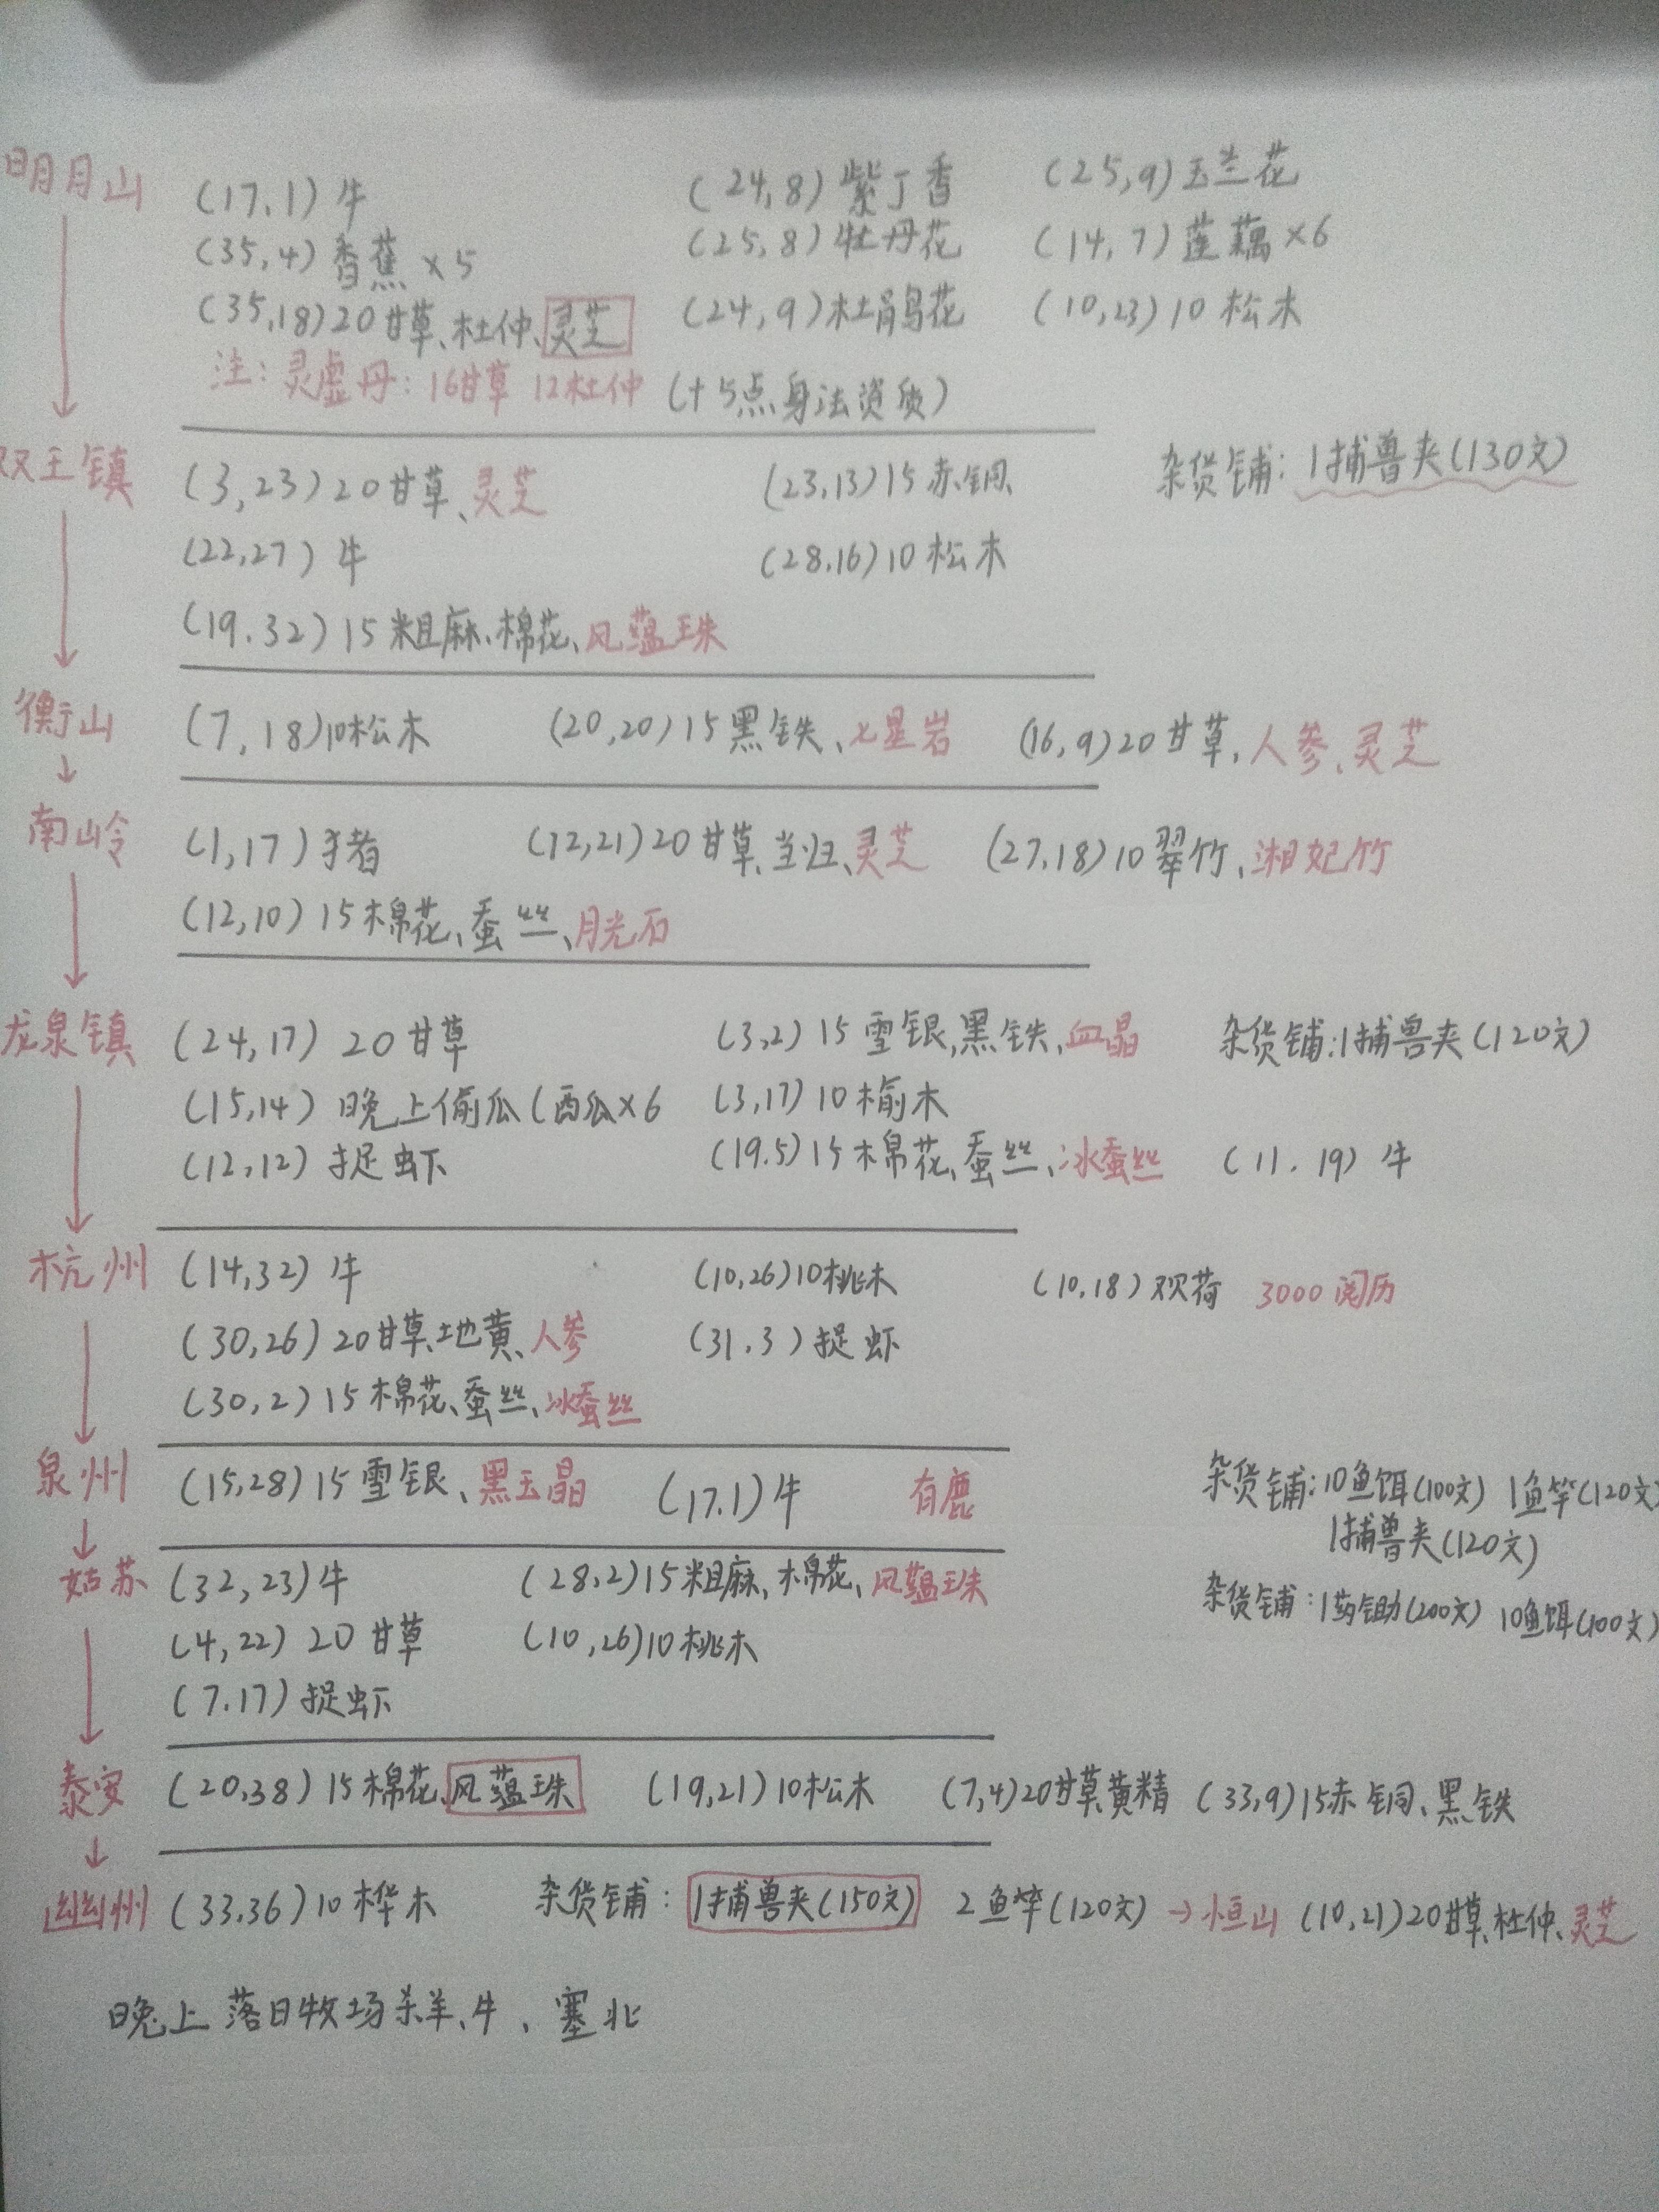 明月山 (17,1) 牛 (24,8) 紫丁香 (25,9) 玉兰花
(35,4) 香蕉 ×5 (25,8) 牡丹花 (14,7) 莲藕 ×6
(35,18) 20甘草、杜仲、灵芝 (24,9) 杜鹃花 (10,23) 10 松木
注：灵虚丹：16甘草 12杜仲 (+5点身法资质)
双王镇 (3,23) 20甘草、灵芝 (23,13) 15 赤铜 杂货铺：1捕兽夹(130文)
(22,27) 牛 (28,16) 10 松木
(19.32) 15 粗麻、棉花、风蕴珠
衡山 (7,18) 10松木 (20,20) 15 黑铁、七星岩 (16,9) 20甘草、人参、灵芝
南岭 (1,17) 猪 (12,21) 20甘草、当归、灵芝 (27,18) 10 翠竹、湘妃竹
(12,10) 15棉花、蚕丝、月光石
龙泉镇 (24,17) 20甘草 (3,2) 15 雪银,黑铁,血晶 杂货铺:1捕兽夹(120文)
(15,14) 晚上偷瓜(西瓜×6 (3,17) 10榆木
(12,12) 捉虾 (19.5) 15棉花、蚕丝、冰蚕丝 (11.19) 牛
杭州 (14,32) 牛 (10,26) 10桃木 (10,18) 观荷 3000阅历
(30,26) 20甘草、地黄、人参 (31.3) 捉虾
(30,2) 15棉花、蚕丝、冰蚕丝
泉州 (15,28) 15雪银、黑玉晶 (17.1) 牛 有鹿 杂货铺:10鱼饵(100文) 1鱼竿(120文)
1捕兽夹(120文)
姑苏 (32,23) 牛 (28,2) 15粗麻,棉花、风蕴珠 杂货铺:1药锄(200文) 10鱼饵(100文)
(4,22) 20甘草 (10,26) 10桃木
(7.17) 捉虾
泰安 (20,38) 15棉花、风蕴珠 (19,21) 10松木 (7,4) 20甘草、黄精 (33,9) 15赤铜、黑铁
幽州 (33,36) 10 桦木 杂货铺：1捕兽夹(150文) 2鱼竿(120文) →恒山 (10,21) 20甘草、杜仲、灵芝
晚上落日牧场杀羊、牛、塞北